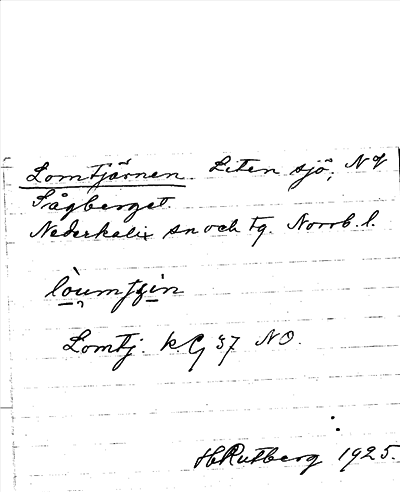 Lomtjärnen. Liten sjö, NV
Sågberget.
Nederkalix sn och tg. Norrb. l.
Lomtj. k. G 37 NO.
H Rutberg 1925.